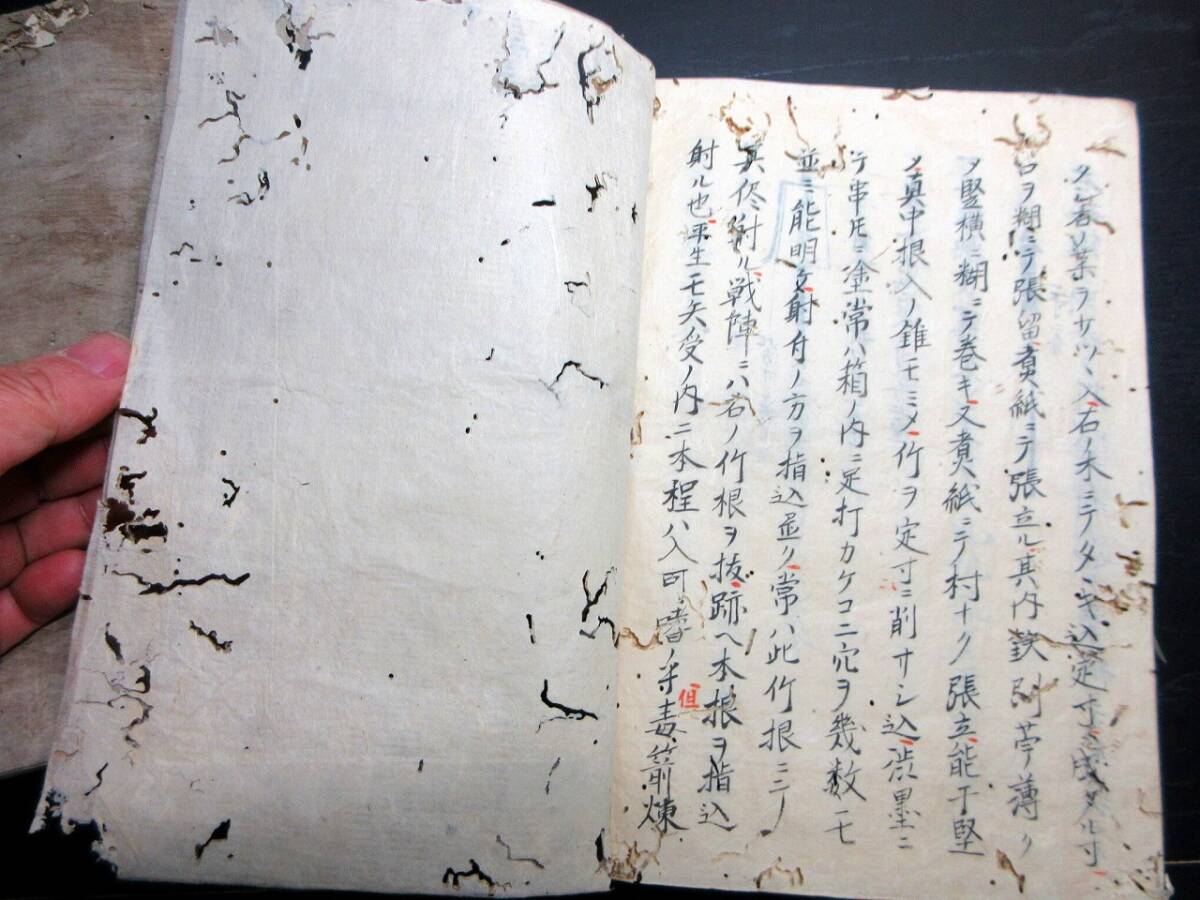 入右ノ木ニテタヽキ込定寸ニ成タル寸
口ヲ糊ニテ張留煮紙ニテ張立ル其内薄ク
メ竪横ニ糊ニテ巻キ又煮紙ニテ村ナク張立能干堅
メ真中根入ノ錐モミメ竹ヲ定寸ニ削サシ込渋墨ニ
テ串ニ塗常ハ箱ノ内ニ足打カケコニ穴ヲ幾数モ
並ニ能明ケ射付ノ方ヲ指込置ク常ハ此竹根ニノ
其侭射ル戦陣ニハ右ノ竹根ヲ抜跡ヘ本根ヲ指込
射ル也平生モ矢受ノ内ニ本程ハ入可嗜ノ
但
毒箭煉